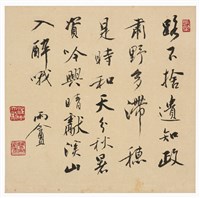 路不捨遺知政
肅野多滯穗
是時和天分秋暑
資吟興晴獻溪山
入醉哦